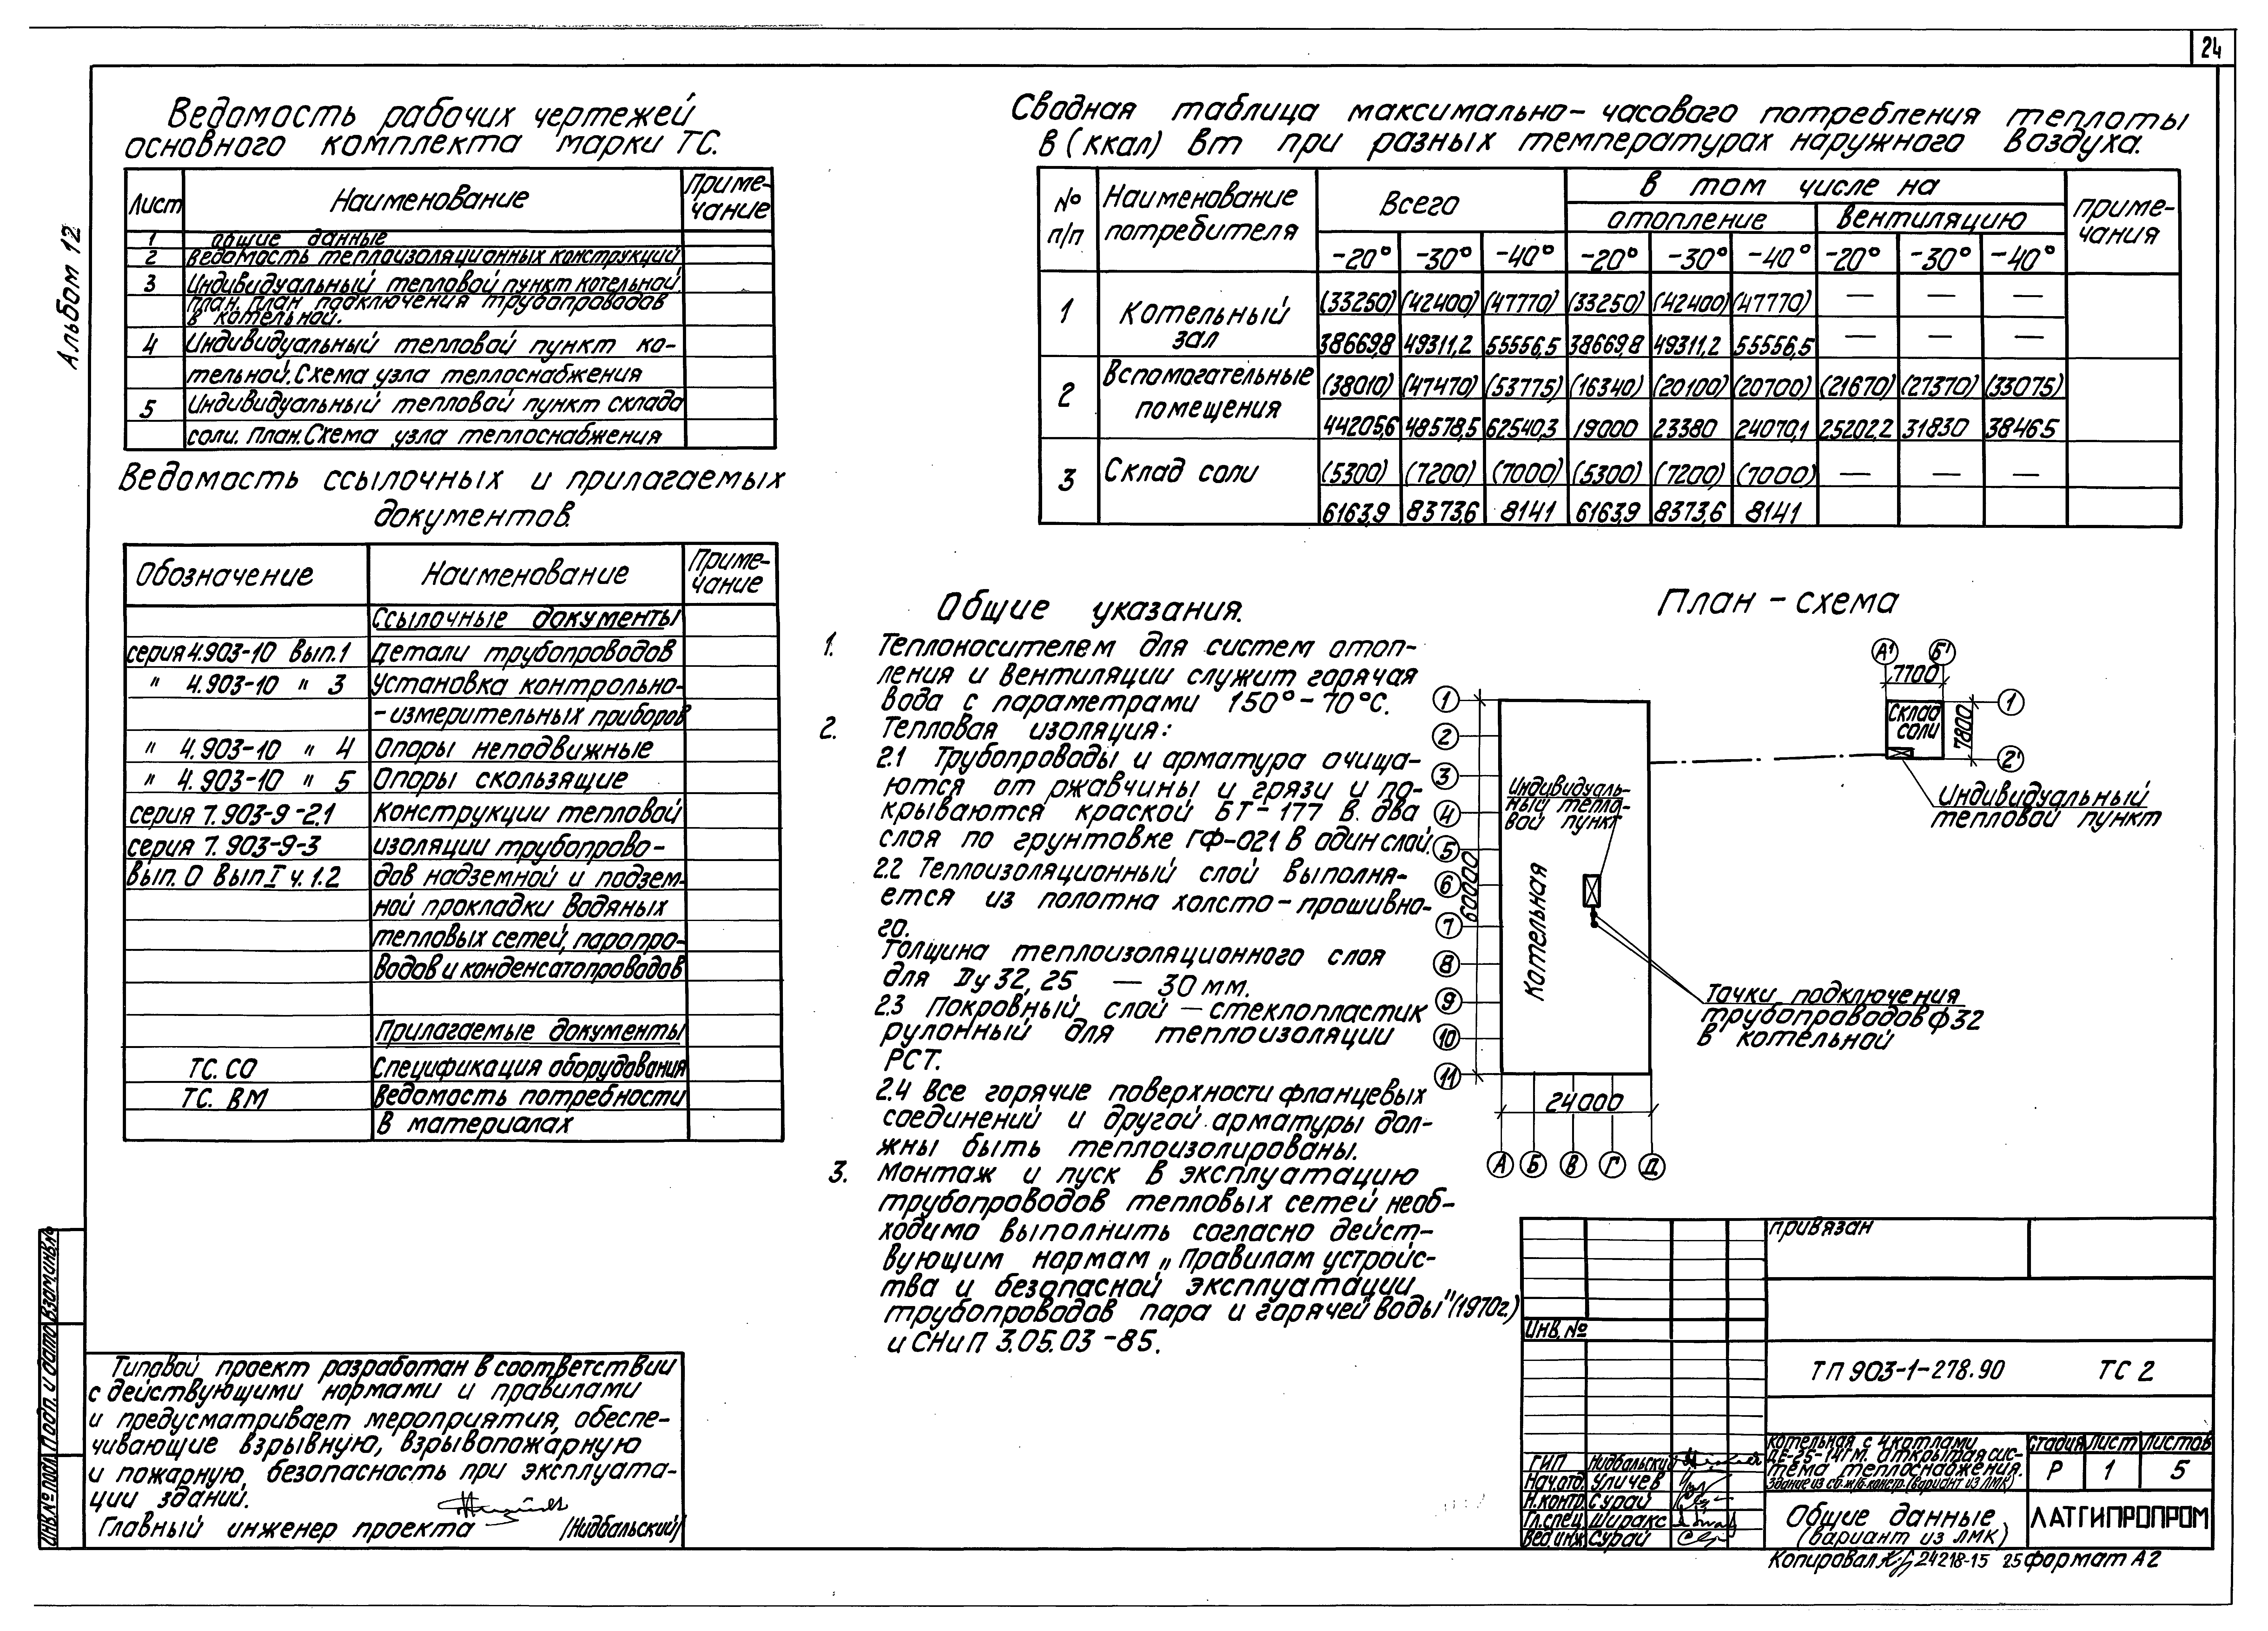 24
Альбом 12
Ведомость рабочих чертежей
основного комплекта марки ТС.
Лист Наименование Приме-
чание
1 общие данные
2 ведомость теплоизоляционных конструкций
3 Индивидуальный тепловой пункт котельной.
план. план подключения трубопроводов
в котельной.
4 Индивидуальный тепловой пункт ко-
тельной. Схема узла теплоснабжения
5 Индивидуальный тепловой пункт склада
соли. план. Схема узла теплоснабжения
Ведомость ссылочных и прилагаемых
документов.
Обозначение Наименование Приме-
чание
Ссылочные документы
серия 4.903-10 вып.1 Детали трубопроводов
" 4.903-10 " 3 Установка контрольно-
-измерительных приборов
" 4.903-10 " 4 Опоры неподвижные
" 4.903-10 " 5 Опоры скользящие
серия 7.903-9-2.1 Конструкции тепловой
серия 7.903-9-3 изоляции трубопрово-
вып. 0 вып I ч. 1.2 дов надземной и подзем-
ной прокладки водяных
тепловых сетей, паропро-
водов и конденсатопроводов
Прилагаемые документы
ТС. СО Спецификация оборудования
ТС. ВМ Ведомость потребности
в материалах
Сводная таблица максимально-часового потребления теплоты
в (ккал) Вт при разных температурах наружного воздуха.
№ п/п Наименование потребителя Всего в том числе на приме-
чания
отопление вентиляцию
-20° -30° -40° -20° -30° -40° -20° -30° -40°
1 Котельный зал (33250) (42400) (47770) (33250) (42400) (47770) — — —
38669,8 49311,2 55556,5 38669,8 49311,2 55556,5 — — —
2 Вспомогательные помещения (38010) (47470) (53775) (16340) (20100) (20700) (21670) (27370) (33075)
44205,6 48578,5 62540,3 19000 23380 24070,1 25202,2 31830 38465
3 Склад соли (5300) (7200) (7000) (5300) (7200) (7000) — — —
6163,9 8373,6 8141 6163,9 8373,6 8141
Общие указания.
1. Теплоносителем для систем отоп-
ления и вентиляции служит горячая
вода с параметрами 150°-70°С.
2. Тепловая изоляция:
2.1 Трубопроводы и арматура очища-
ются от ржавчины и грязи и по-
крываются краской БТ-177 в два
слоя по грунтовке ГФ-021 в один слой.
2.2 Теплоизоляционный слой выполня-
ется из полотна холсто-прошивно-
го.
Толщина теплоизоляционного слоя
для Ду 32, 25 — 30 мм.
2.3 Покровный слой — стеклопластик
рулонный для теплоизоляции
РСТ.
2.4 Все горячие поверхности фланцевых
соединений и другой арматуры дол-
жны быть теплоизолированы.
3. Монтаж и пуск в эксплуатацию
трубопроводов тепловых сетей необ-
ходимо выполнить согласно дейст-
вующим нормам „правилам устройс-
тва и безопасной эксплуатации
трубопроводов пара и горячей воды" (1970г.)
и СНиП 3.05.03-85.
План-схема
А' Б'
7700
Склад
соли
7800
1
2'
Индивидуальный
тепловой пункт
1
2
3
4
5
6
7
8
9
10
11
60000
Индивидуаль-
ный тепло-
вой пункт
Котельная
Точки подключения
трубопроводов ф32
в котельной
24000
А Б В Г Д
Типовой проект разработан в соответствии
с действующими нормами и правилами
и предусматривает мероприятия, обеспе-
чивающие взрывную, взрывопожарную
и пожарную безопасность при эксплуата-
ции зданий.
Главный инженер проекта /Нидбальский/
Инв.№ подл. Подп. и дата Взам.инв.№
привязан
Инв.№
ТП 903-1-278.90 ТС 2
ГИП Нидбальский
Нач.отд. Уличев
Н.контр. Сурай
Гл.спец. Ширакс
Вед.инж. Сурай
Котельная с 4 котлами
ДЕ-25-14ГМ. Открытая сис-
тема теплоснабжения.
Здание из сб. ж/б констр. (вариант из ЛМК)
Стадия Лист Листов
Р 1 5
Общие данные
(вариант из ЛМК)
ЛАТГИПРОПРОМ
Копировал 24218-15 25 формат А2